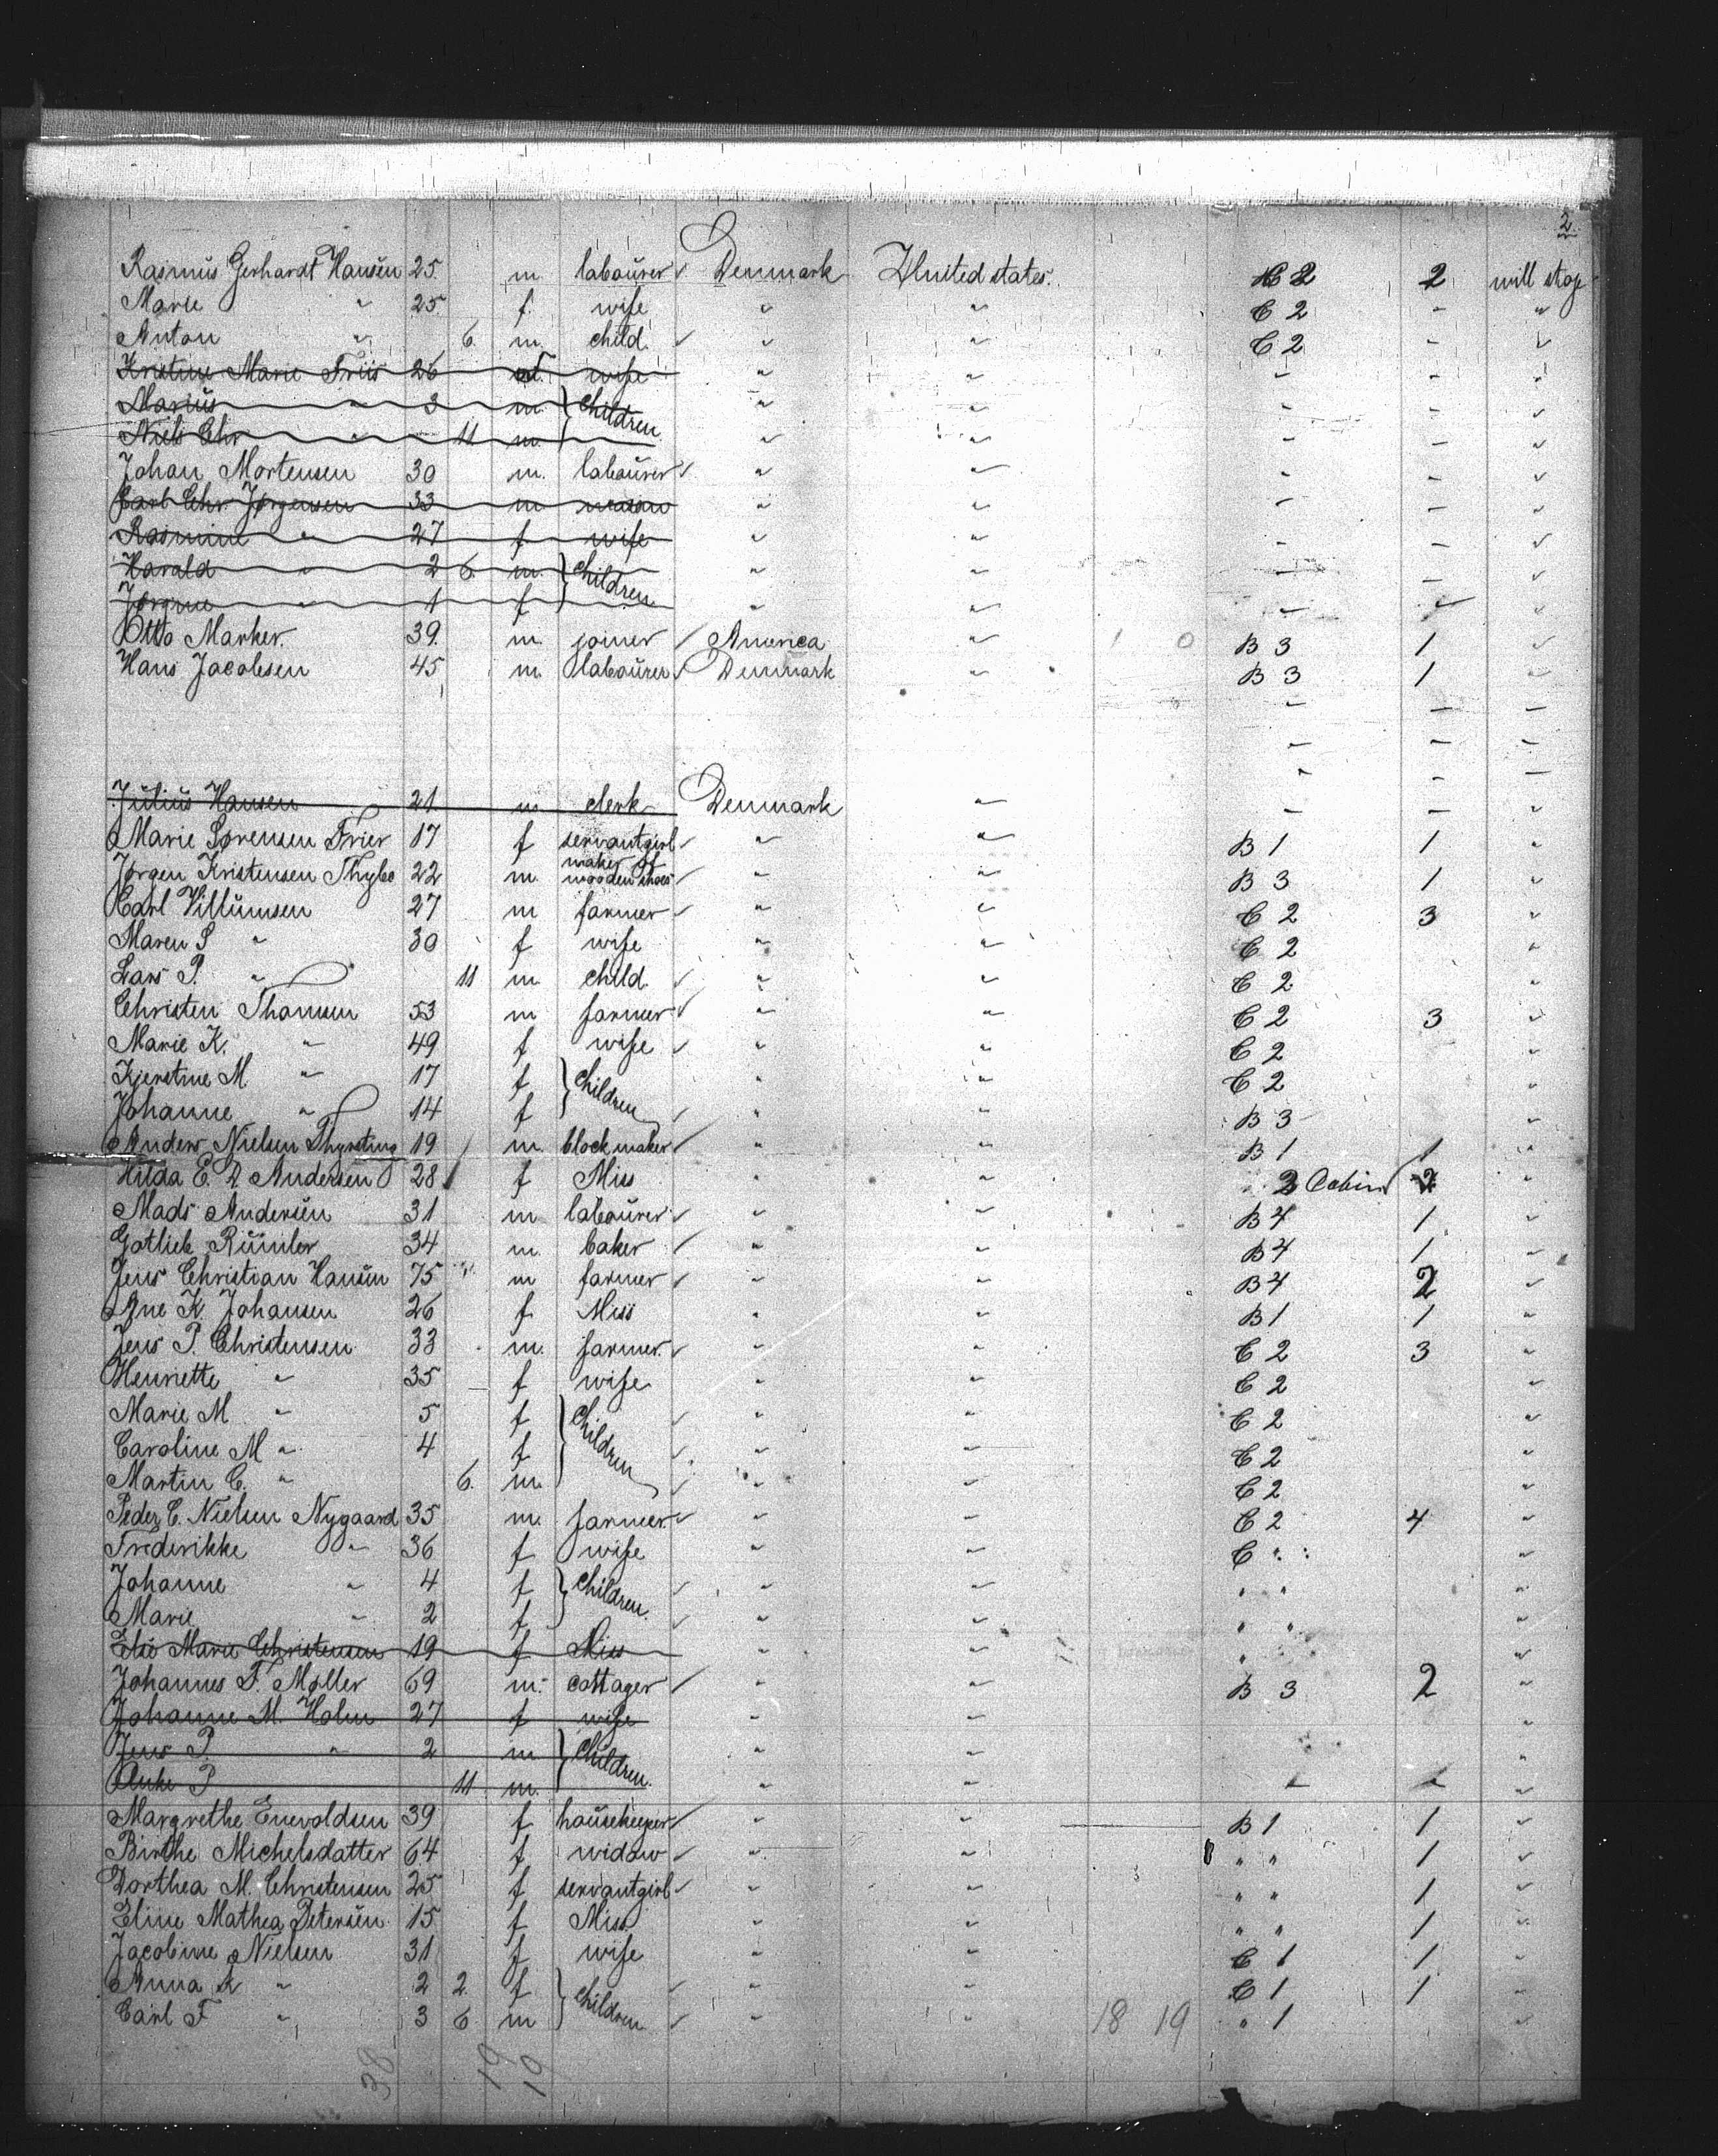 2
Rasmus Gerhardt Hansen 25 m labourer Denmark United states. C 2 2 will stop
Marie " 25 f. wife " " C 2 - "
Anton " 6. m. child. " " C 2 - "
Kristine Marie Friis 26 f. wife " " - - "
Marius " 3 m. } children " " - - "
Niels Chr " 11 m. " " - - "
Johan Mortensen 30 m. labourer " " - - "
Carl Chr. Jørgensen 33 m mason " " - - "
Rasmine " 27 f wife " " - - "
Harald " 2 6. m. } children " " - - "
Jørgine " 1 f " " - - "
Otto Marker. 39. m. joiner America " 1 0 B 3 1 "
Hans Jacobsen 45 m. labourer Denmark " B 3 1 "
- - -
- - -
- - -
Julius Hansen 21 m clerk Denmark " - - "
Marie Sørensen Frier 17 f servantgirl " " B 1 1 "
Jørgen Kristensen Thybo 22 m. maker of wooden shoes " " B 3 1 "
Carl Villumsen 27 m farmer " " C 2 3 "
Maren S " 30 f wife " " C 2 "
Lars P. " 11 m. child. " " C 2 "
Christen Thomsen 53 m farmer " " C 2 3 "
Marie K. " 49 f wife " " C 2 "
Kjerstine M. " 17 f } children " " C 2 "
Johanne " 14 f " " B 3 "
Anders Nielsen Thyrsting 19 m. block maker " " B 1 1 "
Hilda E. D. Andersen 28 f Miss " " 2 Cabin 2 "
Mads Andersen 31 m labourer " " B 4 1 "
Gotlieb Rümler 34 m. baker " " B 4 1 "
Jens Christian Hansen 75 m farmer " " B 4 2 "
Ane K. Johansen 26 f Miss " " B 1 1 "
Jens P. Christensen 33 m. farmer. " " C 2 3 "
Henriette " 35 f wife " " C 2 "
Marie M " 5 f } children " " C 2 "
Caroline M " 4 f " " C 2 "
Martin C. " 6. m. " " C 2 "
Peder C. Nielsen Nygaard 35 m. farmer. " " C 2 4 "
Frederikke " 36 f wife " " C " "
Johanne " 4 f } children. " " " " "
Marie " 2 f " " " " "
Else Marie Christensen 19 f Miss " " " "
Johannes F. Møller 69 m. cottager " " B 3 2 "
Johanne M. Holm 27 f wife " " "
Jens P. " 2 m } children. " " "
P 11 m. " " - - "
Margrethe Enevoldsen 39 f housekeeper " " B 1 1 "
Birthe Michelsdatter 64 f widow " " " " 1 "
Dorthea M. Christensen 25 f servantgirl " " " " 1 "
Eline Mathea Petersen 15 f Miss. " " " " 1 "
Jacobine Nielsen 31 f wife " " C 1 1 "
Anna K " 2 2 f } children " " C 1 1 "
Carl F " 3 6 m " " 18 19 " 1 "
38 19 19